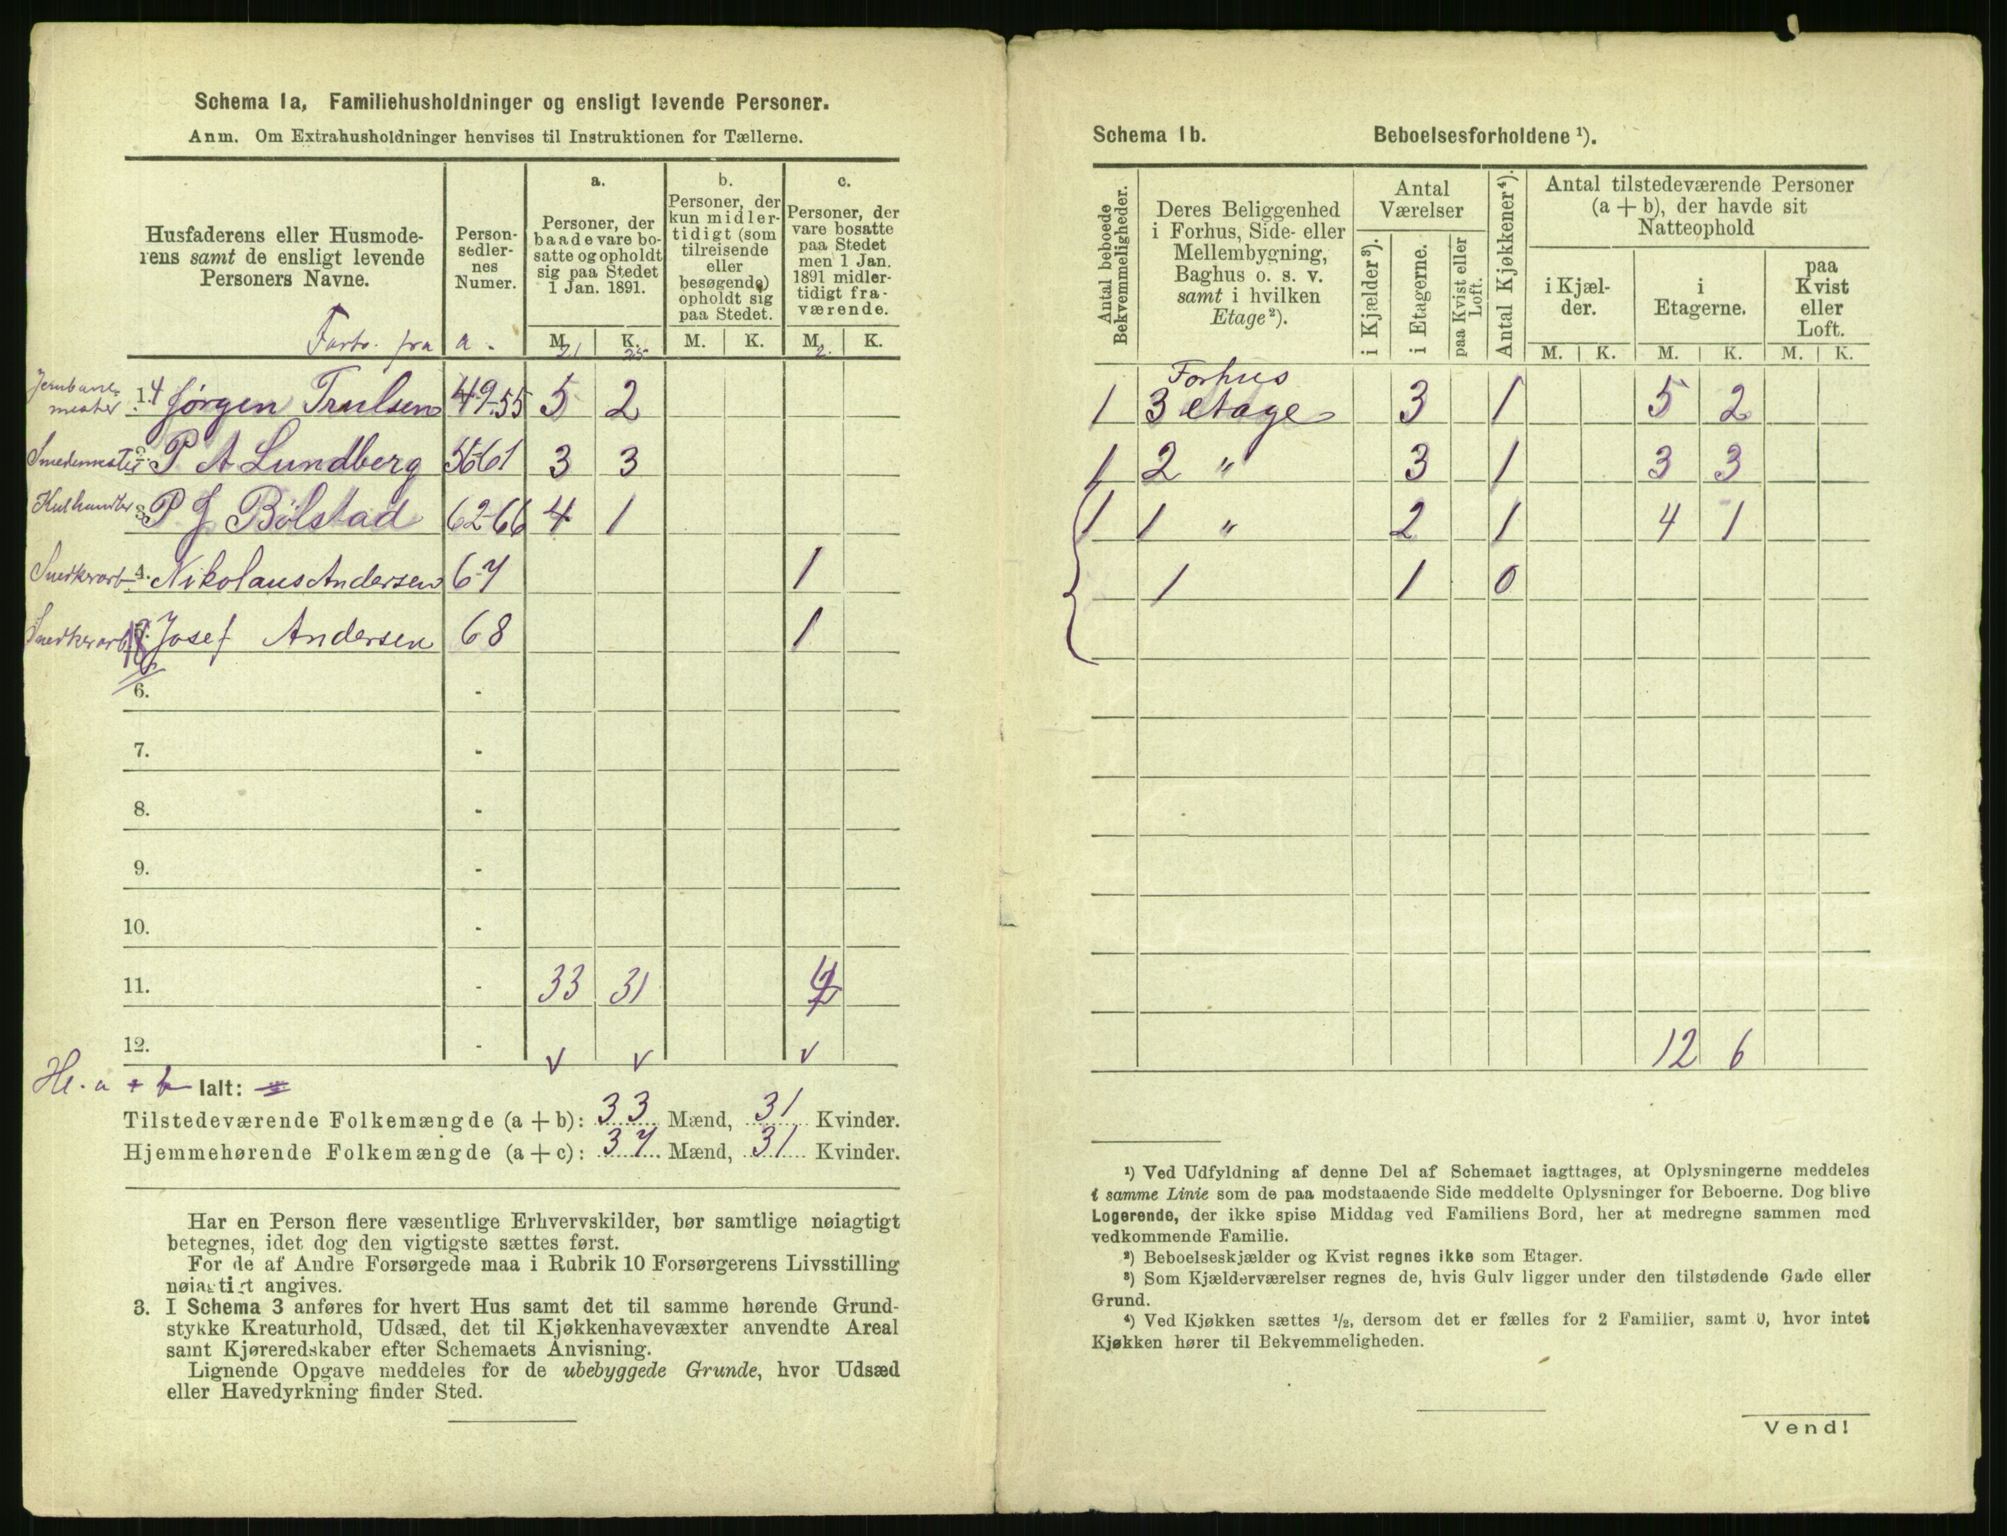 Schema 1a, Familiehusholdninger og ensligt levende Personer.
Anm. Om Extrahusholdninger henvises til Instruktionen for Tællerne.
Husfaderens eller Husmode-
rens samt de ensligt levende
Personers Navne.
Person-
sedler-
nes
Numer.
a.
Personer, der
baade vare bo-
satte og opholdt
sig paa Stedet
1 Jan. 1891.
b.
Personer, der
kun midler-
tidigt (som
tilreisende
eller
besøgende)
opholdt sig
paa Stedet.
c.
Personer, der
vare bosatte
paa Stedet
men 1 Jan.
1891 midler-
tidigt fra-
værende.
M. K. M. K. M. K.
Forts. fra a. 21 25 2.
Jernbane-
mester 1. 14 Jørgen Trulsen 49-55 5 2
Smedemester 2. P. A Lundberg 56-61 3 3
Kulhandler 3. P J Bölstad 62-66 4 1
Snedkerarb 4. Nikolaus Andersen 67 1
Snedkerarb 5. Josef Andersen 68 1
6. -
7. -
8. -
9. -
10. -
11. - 33 31
12. - v v v
Hl. a + b Ialt:
Tilstedeværende Folkemængde (a + b): 33 Mænd, 31 Kvinder.
Hjemmehørende Folkemængde (a + c): 37 Mænd, 31 Kvinder.
Har en Person flere væsentlige Erhvervskilder, bør samtlige nøiagtigt
betegnes, idet dog den vigtigste sættes først.
For de af Andre Forsørgede maa i Rubrik 10 Forsørgerens Livsstilling
nøiagtigt angives.
3. I Schema 3 anføres for hvert Hus samt det til samme hørende Grund-
stykke Kreaturhold, Udsæd, det til Kjøkkenhavevæxter anvendte Areal
samt Kjøreredskaber efter Schemaets Anvisning.
Lignende Opgave meddeles for de ubebyggede Grunde, hvor Udsæd
eller Havedyrkning finder Sted.
Schema 1b. Beboelsesforholdene ¹).
Antal beboede
Bekvemmeligheder.
Deres Beliggenhed
i Forhus, Side- eller
Mellembygning,
Baghus o. s. v.
samt i hvilken
Etage²).
Antal
Værelser
i Kjælder³).
i Etagerne.
paa Kvist eller
Loft.
Antal Kjøkkener⁴).
Antal tilstedeværende Personer
(a + b), der havde sit
Natteophold
i Kjæl-
der.
i
Etagerne.
paa
Kvist
eller
Loft.
M. K. M. K. M. K.
Forhus
1 3 etage 3 1 5 2
1 2 " 3 1 3 3
1 1 " 2 1 4 1
1 1 0
12 6
¹) Ved Udfyldning af denne Del af Schemaet iagttages, at Oplysningerne meddeles
i samme Linie som de paa modstaaende Side meddelte Oplysninger for Beboerne. Dog blive
Logerende, der ikke spise Middag ved Familiens Bord, her at medregne sammen med
vedkommende Familie.
²) Beboelseskjælder og Kvist regnes ikke som Etager.
³) Som Kjælderværelser regnes de, hvis Gulv ligger under den tilstødende Gade eller
Grund.
⁴) Ved Kjøkken sættes ½, dersom det er fælles for 2 Familier, samt 0, hvor intet
Kjøkken hører til Bekvemmeligheden.
Vend!